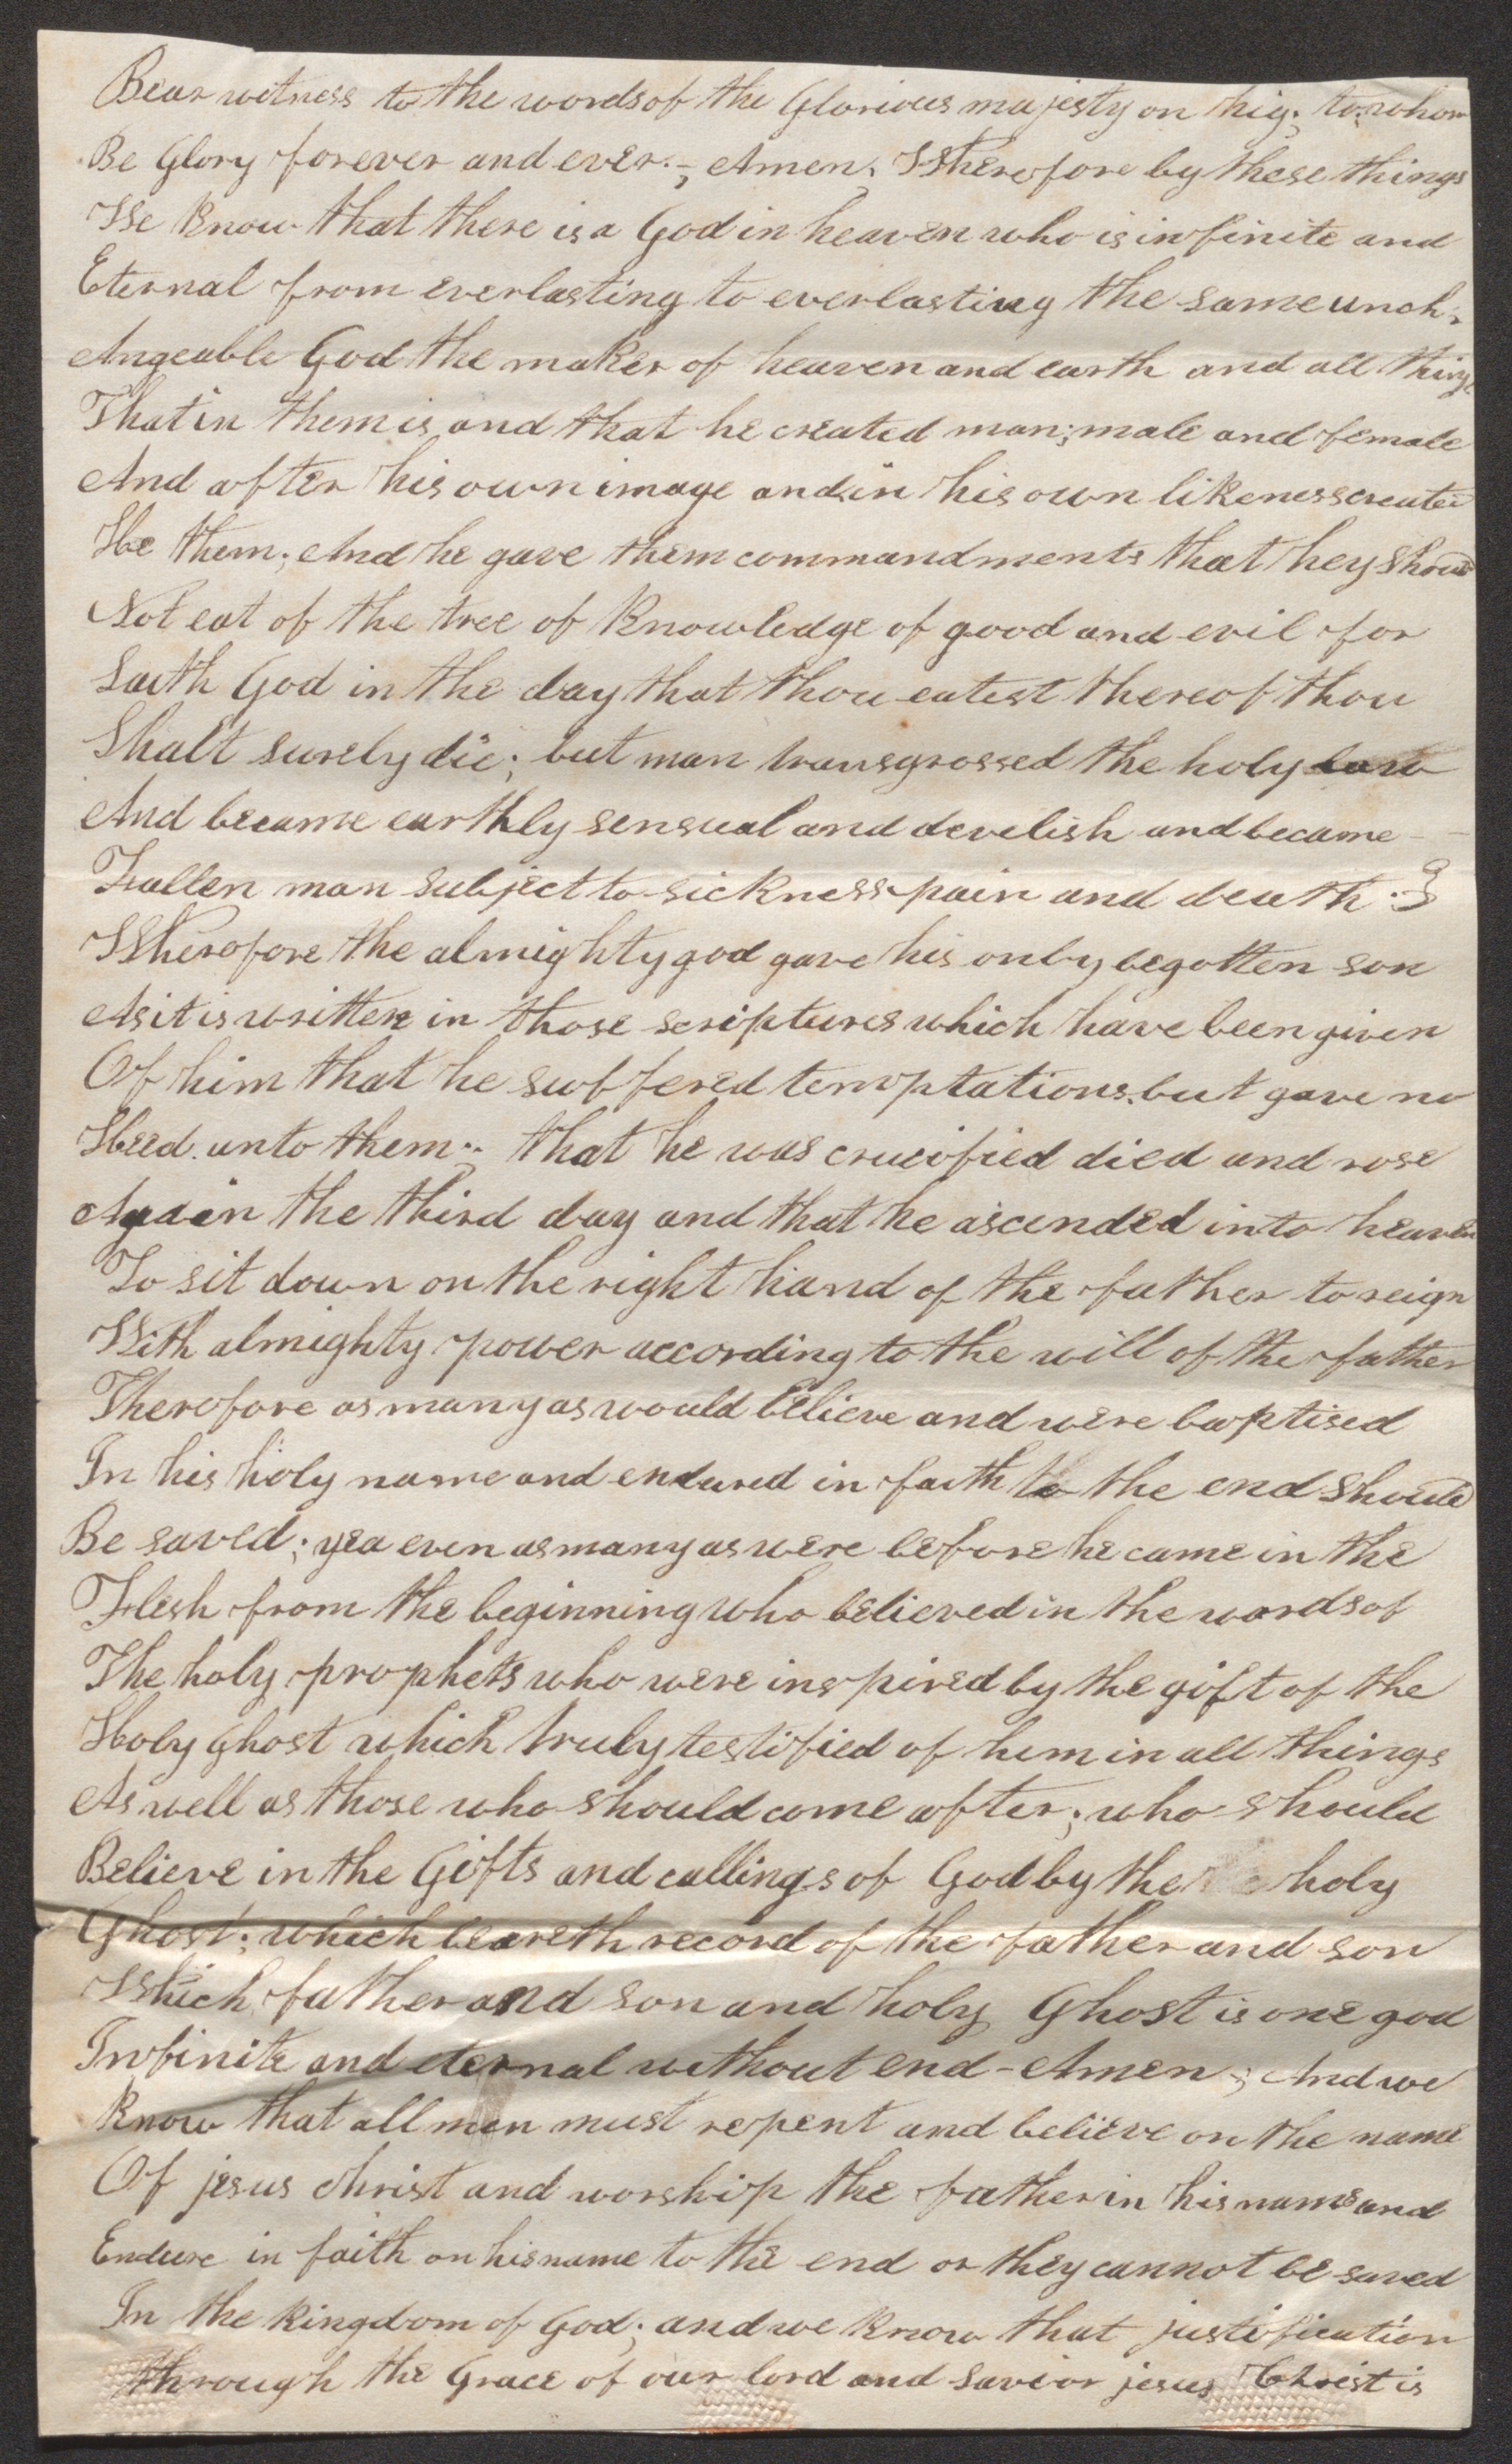 Bear witness to the words of the Glorious majesty on hig; to whom
Be Glory forever and ever.-, Amen, Wherefore by these things
We Know that there is a God in heaven who is infinite and
Eternal from everlasting to everlasting the same unch-
Angeable God the maker of heaven and earth and all things
That in them is and that he created man; male and female
And after his own image and in his own likeness created
He them; And he gave them commandments that hey should
Not eat of the tree of Knowledge of good and evil for
Saith God in the day that thou eatest thereof thou
Shalt surely die; but man transgrossed the holy law
And became earthly sensual and develish and became -
Fallen man subject to sickness pain and death.
Wherefore the almighty god gave his only begotten son
As it is written in those scriptures which have been given
Of him that he suffered temptations but gave no
Heed unto them; that he was crucified died and rose
Again the third day and that he ascended into heaven
To sit down on the right hand of the father to reign
With almighty power according to the will of the father
Therefore as many as would believe and were baptised
In his holy name and endured in faith to the end should
Be saved; yea even as many as were before he came in the
Flesh from the beginning who believed in the words of
The holy prophets who were inspired by the gift of the
Holy ghost which truly testified of him in all things
As well as those who should come after; who should
Believe in the Gifts and callings of God by the holy
Ghost; which beareth record of the father and son
Which father and son and holy Ghost is one god
Infinite and eternal without end - Amen; And we
Know that all men must repent and believe on the name
Of jesus christ and worship the father in his name and
Endure in faith on his name to the end or they cannot be saved
In the kingdom of God; and we know that justification
through the Grace of our lord and savior jesus Christ is